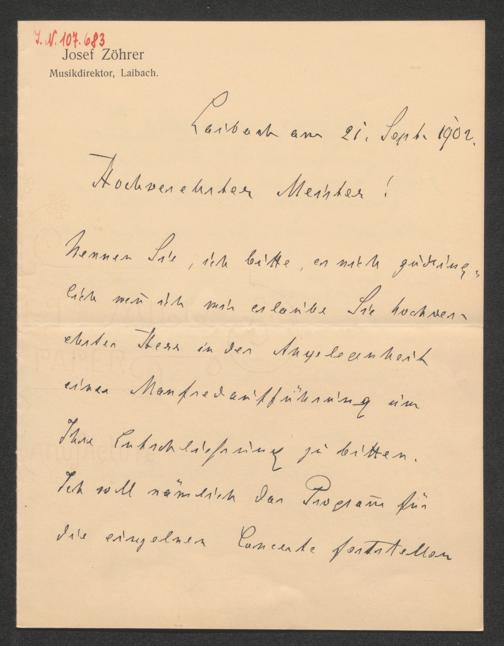 J. N. 107.683
Josef Zöhrer
Musikdirektor, Laibach.
Laibach am 21. Sept. 1902.
Hochverehrter Meister!
Nennen Sie, ich bitte, es nicht zudring-
lich wen̄ ich mir erlaube Sie hochver-
ehrter Herr in der Angelegenheit
einer Manfredaufführung um
Ihre Entschließung zu bitten.
Ich soll nämlich das Program̄ für
die einzelnen Concerte feststellen